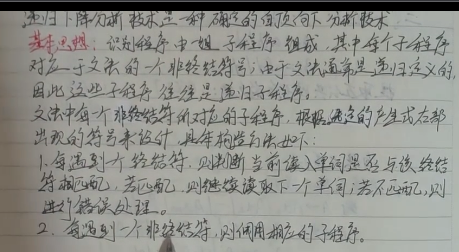 递归下降分析技术是一种确定的自顶向下分析技术
基本思想：识别程序由一组子程序组成，其中每个子程序
对应于文法的一个非终结符号；由于文法通常是递归定义的，
因此这些子程序往往是递归子程序。
文法中每个非终结符所对应的子程序，根据选定的产生式右部
出现的符号来设计，具体构造方法如下：
1. 每遇到一个终结符，则判断当前读入单词是否与该终结
符相匹配，若匹配，则继续读取下一个单词；若不匹配，则
进行错误处理。
2. 每遇到一个非终结符，则调用相应的子程序。